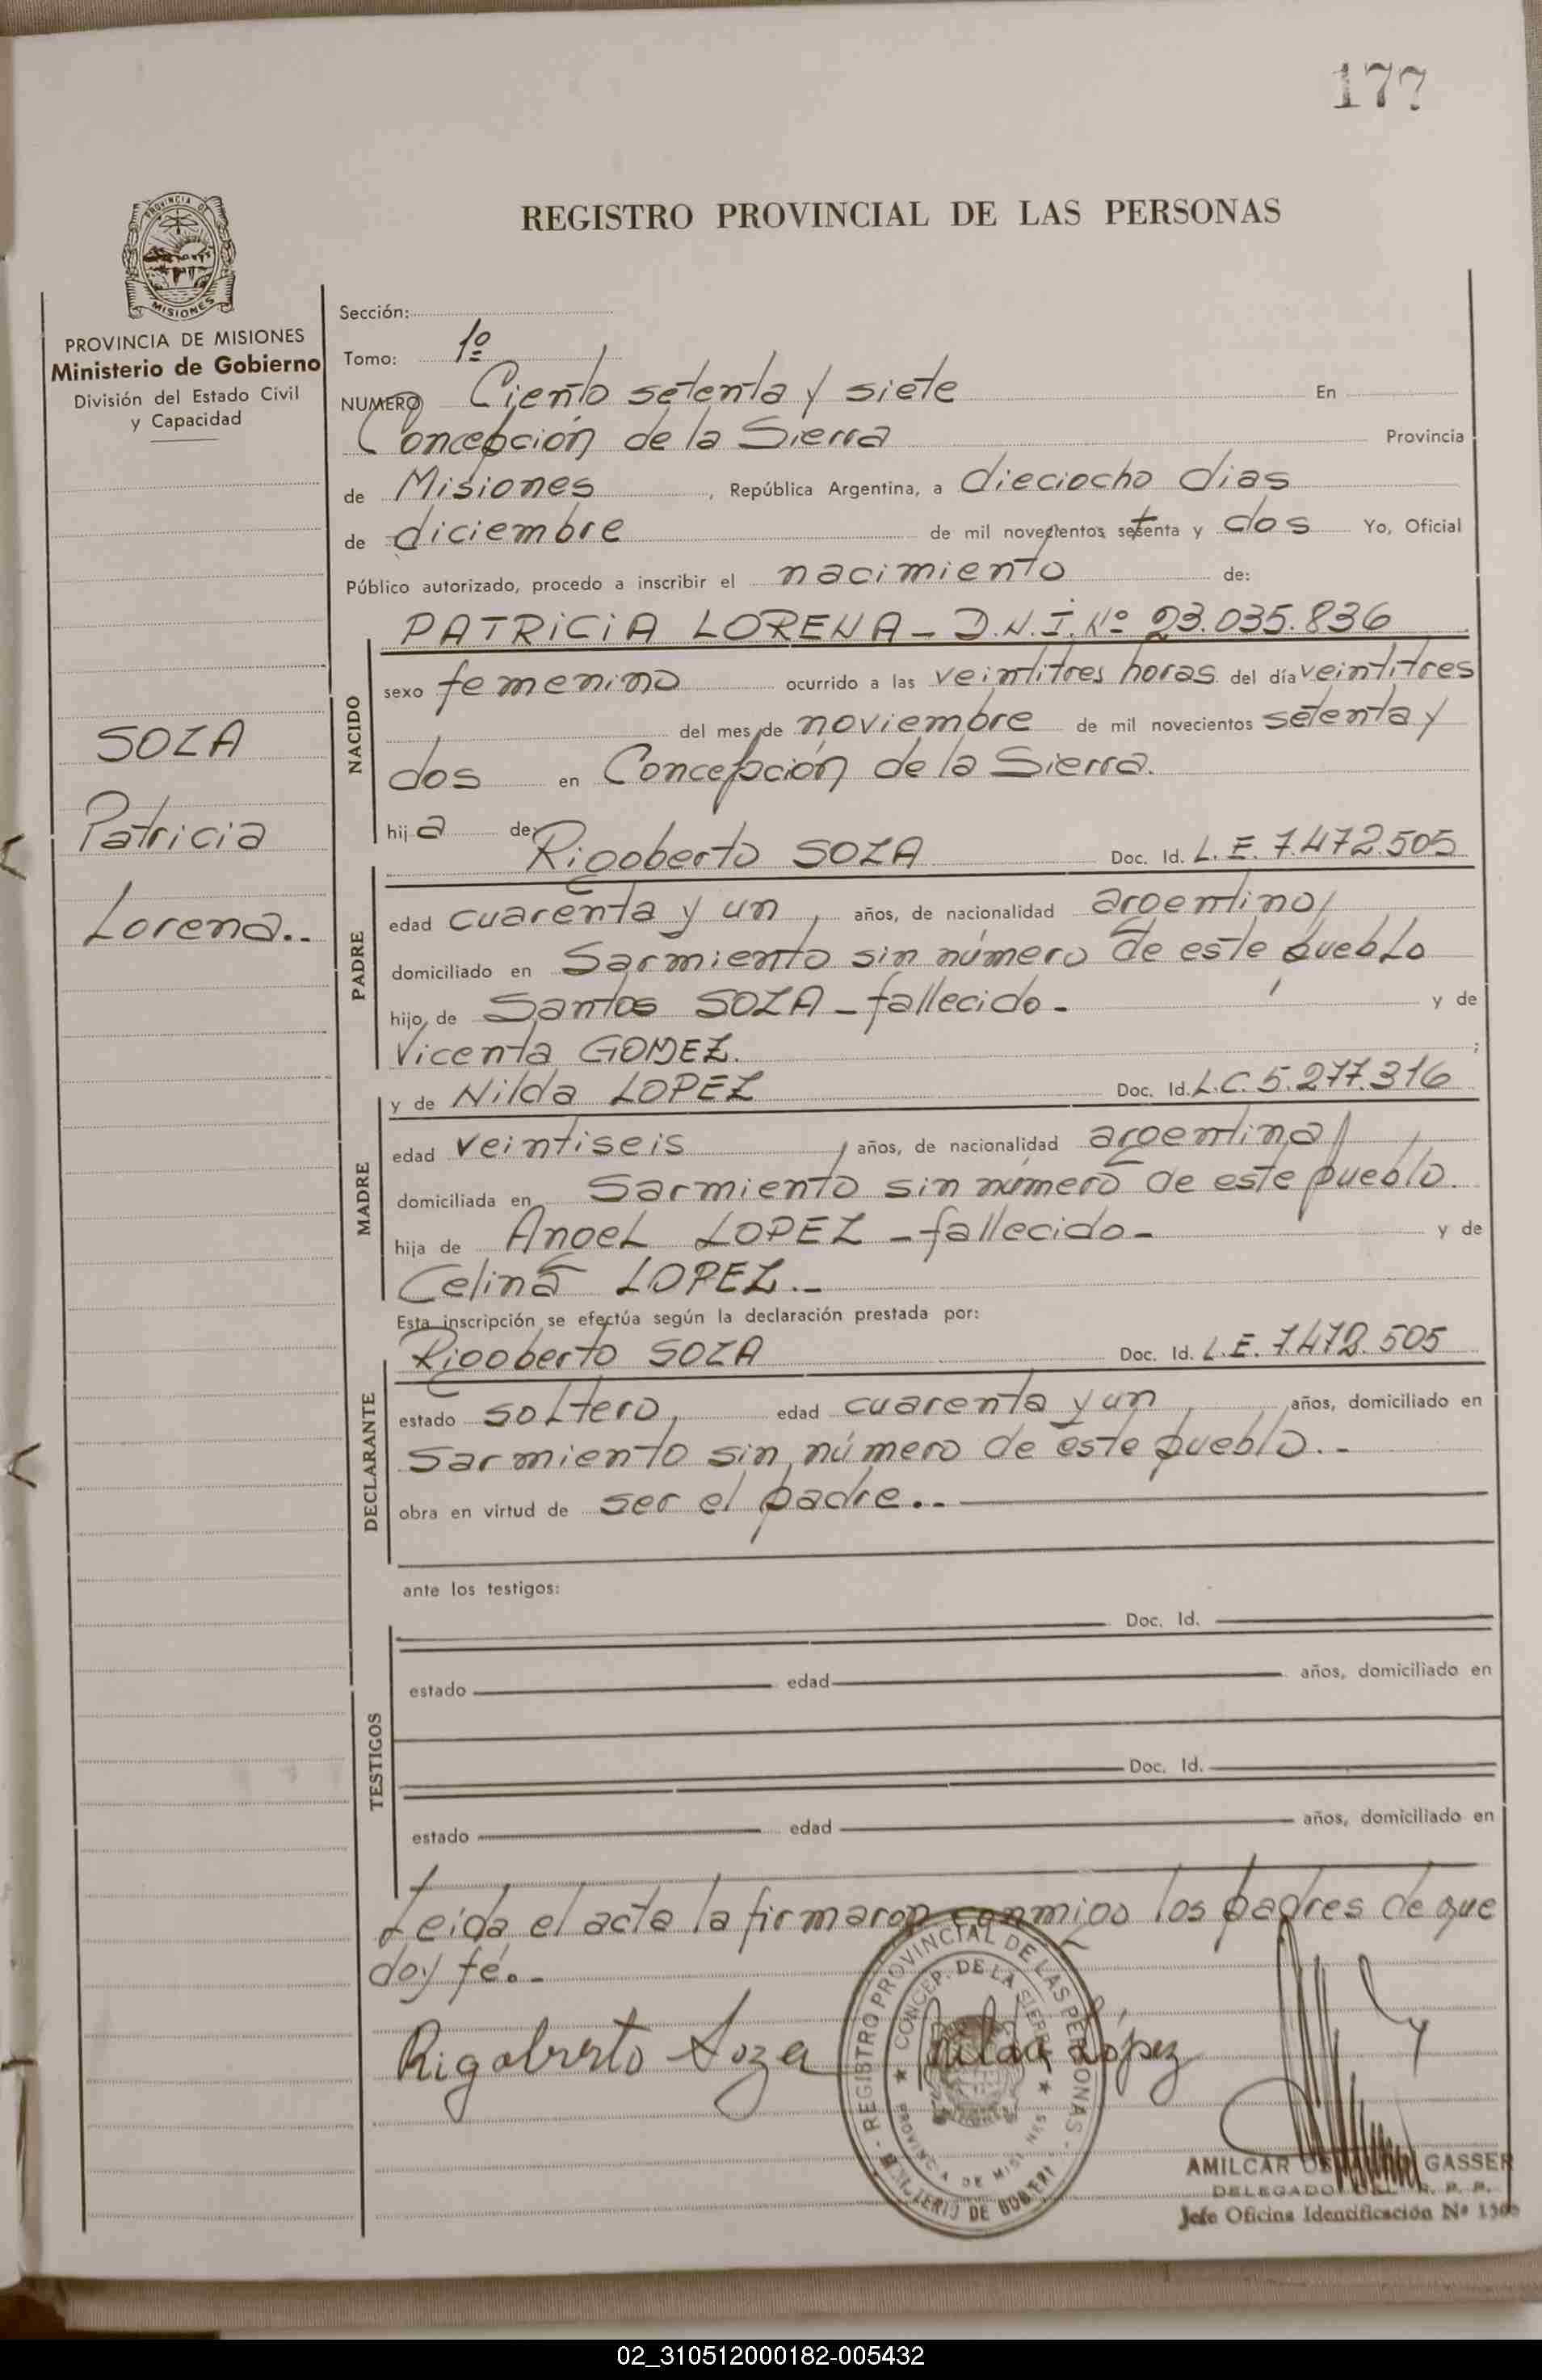 177
REGISTRO PROVINCIAL DE LAS PERSONAS
PROVINCIA DE
MISIONES
PROVINCIA DE MISIONES
Ministerio de Gobierno
División del Estado Civil
y Capacidad
SOZA
Patricia
Lorena..
Sección:
Tomo: 1º
NUMERO Ciento setenta y siete En
Concepción de la Sierra Provincia
de Misiones, República Argentina, a dieciocho dias
de diciembre de mil novecientos setenta y dos Yo, Oficial
Público autorizado, procedo a inscribir el nacimiento de:
PATRICIA LORENA - D.N.I. Nº 23.035.836
NACIDO
sexo femenino ocurrido a las veintitres horas del día veintitres
del mes de noviembre de mil novecientos setenta y
dos en Concepción de la Sierra.
hija de: Rigoberto SOZA Doc. Id. L.E. 7.472.505
PADRE
edad cuarenta y un, años, de nacionalidad argentino,
domiciliado en Sarmiento sin número de este pueblo
hijo, de Santos SOZA - fallecido - y de
Vicenta GOMEZ. ;
y de Nilda LOPEZ Doc. Id. L.C. 5.277.316
MADRE
edad veintiseis, años, de nacionalidad argentina,
domiciliada en Sarmiento sin número de este pueblo.
hija de Angel LOPEZ - fallecido - y de
Celina LOPEZ.-
Esta inscripción se efectúa según la declaración prestada por:
Rigoberto SOZA Doc. Id. L.E. 7.472.505
DECLARANTE
estado soltero, edad cuarenta y un, años, domiciliado en
Sarmiento sin número de este pueblo..-
obra en virtud de ser el padre..-
ante los testigos:
TESTIGOS
Doc. Id.
estado edad años, domiciliado en
Doc. Id.
estado edad años, domiciliado en
Leida el acta la firmaron conmigo los padres de que
doy fé..-
Rigoberto Soza Nilda López
REGISTRO PROVINCIAL DE LAS PERSONAS
CONCEP. DE LA SIERRA
PROVINCIA DE MISIONES
MINISTERIO DE GOBIERNO
AMILCAR GASSER
DELEGADO DEL R. P. P.
Jefe Oficina Identificación Nº
02_310512000182-005432